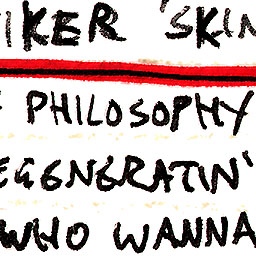 IKER 'SKIN
PHILOSOPHY
EGENERATIN'
WHO WANNA